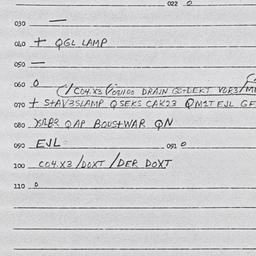 022 0
030 —
040 + QGL LAMP
050 —
060 0
(/CO4.X3 (/02/100 DRAIN
070 + S+AV3SLAMP QSEKS CAK23 QM1T EJL GF
080 QAP BOUS+WAR QN
090 EJL 091 0
100 CO4.X3 /DOXT /DER DOXT
110 0